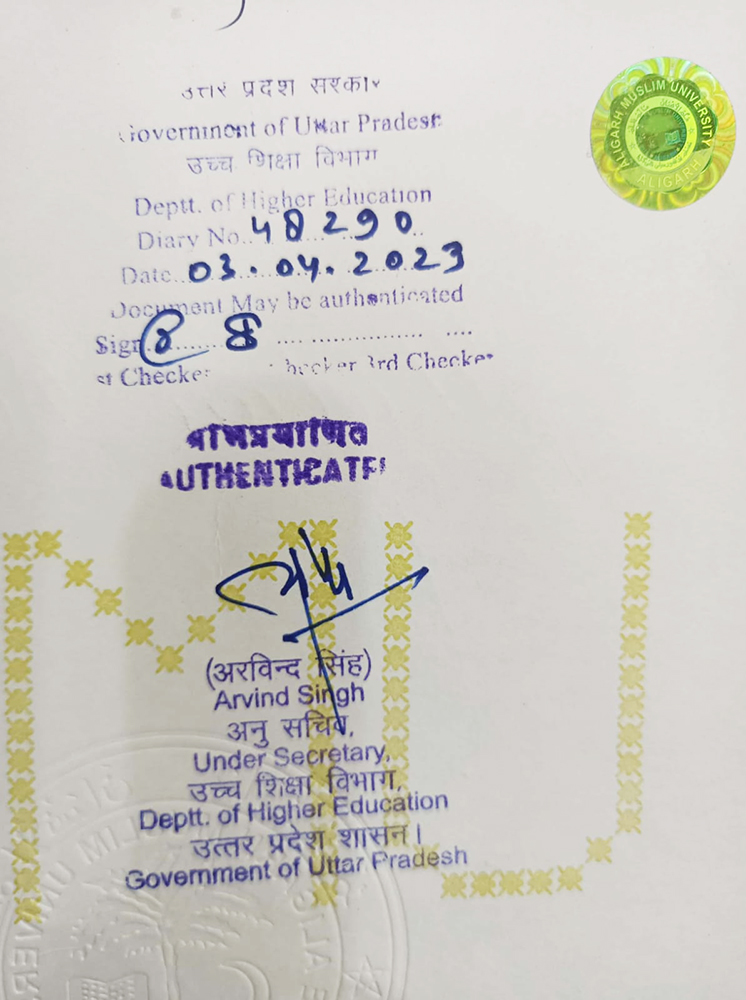 उत्तर प्रदेश सरकार
Government of Uttar Pradesh
उच्च शिक्षा विभाग
Deptt. of Higher Education
Diary No. 48290
Date 03.04.2023
Document May be authenticated
Sign
st Checker Checker 3rd Checker
अभिप्रमाणित
AUTHENTICATED
(अरविन्द सिंह)
Arvind Singh
अनु सचिव,
Under Secretary,
उच्च शिक्षा विभाग,
Deptt. of Higher Education
उत्तर प्रदेश शासन।
Government of Uttar Pradesh
ALIGARH MUSLIM UNIVERSITY
ALIGARH